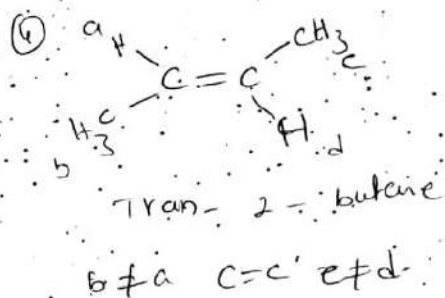 ④ a H CH3 c
C = C
H3C b H d
Tran- 2 - butene
b ≠ a C=C' c ≠ d